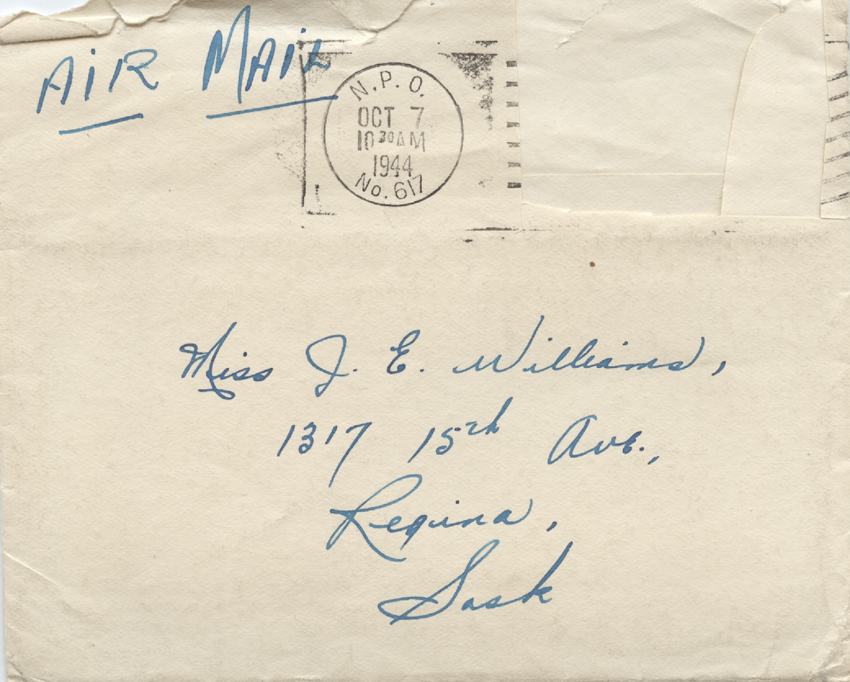 AIR MAIL
N.P.O.
OCT 7
10 30 AM
1944
No. 617
Miss J. E. Williams,
1317 15th Ave.,
Regina,
Sask